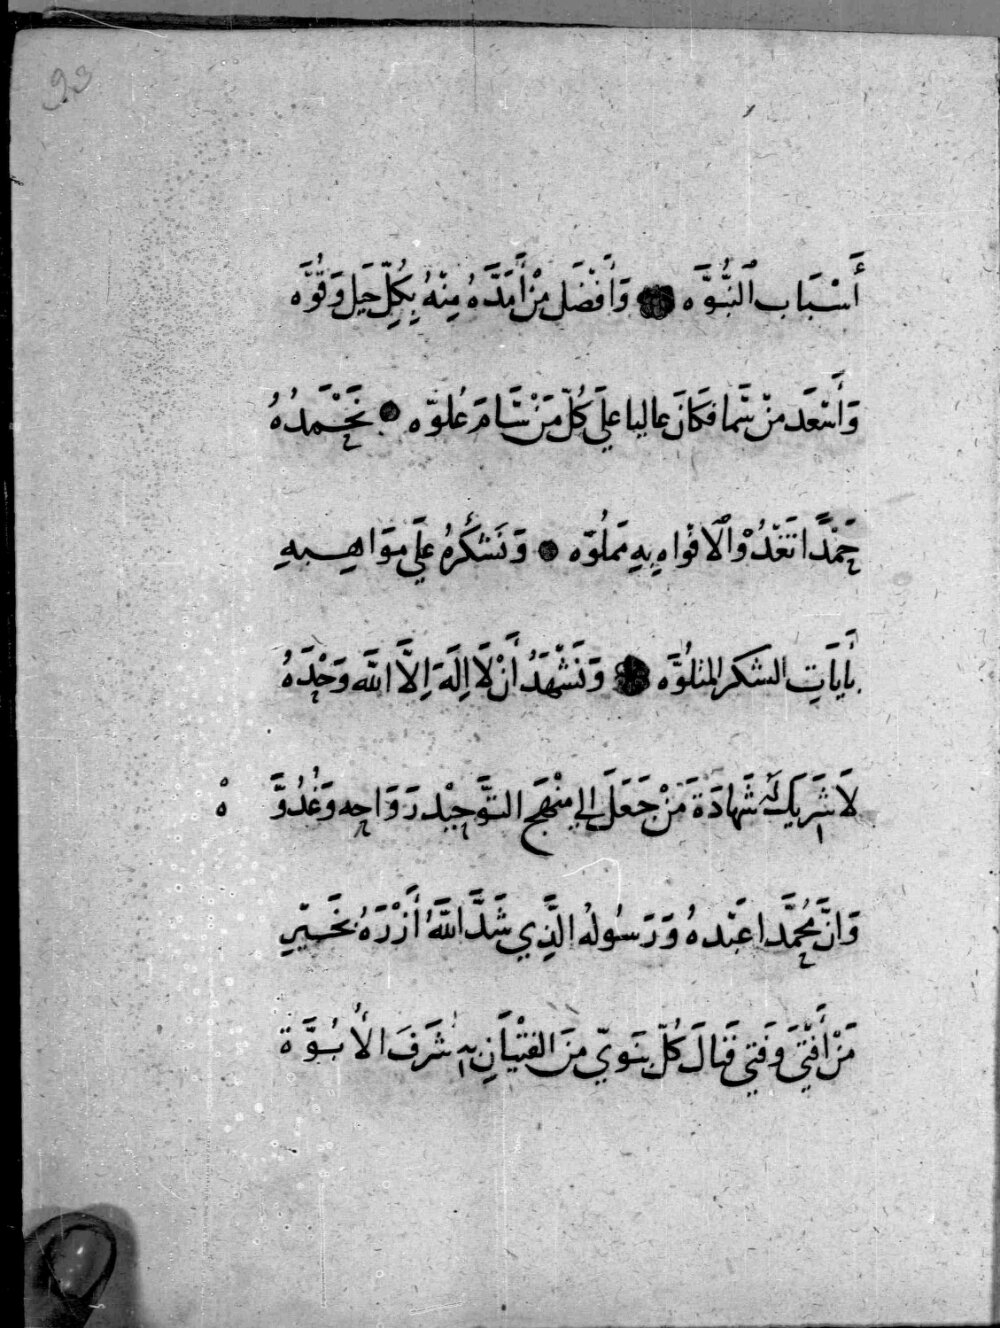 93
أَسْبَاب النُّبُوَّه وَأَفْضَل مِنْ أَمَدَّهُ مِنْهُ بِكُلِّ حَيل وَقُوَّه
وَأَسْعَد مِنْ سَمَا فَكَانَ عاليا علَى كُلّ مَنْ سَامَ عُلوّه نَحْمَدُهُ
حَمْدًا تَغْدُوْا الأفواه بِهِ مَملُوّه وَنَشْكُرهُ علَى موَاهِبهِ
بأيَاتِ الشكر المتلُوَّه وَنَشْهَدُ أَنْ لَا إِلَهَ إِلَّا اللَّه وَحْدَهُ
لَا شَرِيكَ لَهُ شَهَادَة مَنْ جَعَلَ إلي منْهَج التَّوَحِيْد رَوَاحِه وَغُدُوَّهْ
وَانَّ مُحَمَّدا عَبْدهُ وَرَسُولُه الَّذِي شَدَّ اللَّهُ أَزْرَهُ بخَيْرِ
مَنْ أَفْتَى وَفَتِي فَنَالَ كُلّ بنَويّ منَ الفتْيَانِ بهِ شَرَفَ الأُبُوَّة